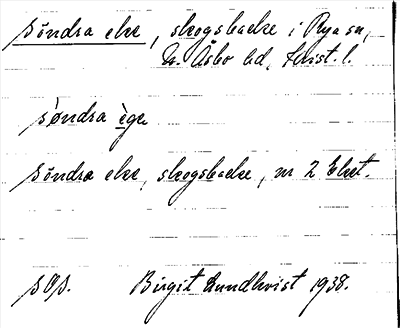 söndra eke, skogsbacke i Rya sn,
N. Åsbo hd, Krist. l.
söndra ège
söndra eke, skogsbacke, nr 2 Eket.
s Os. Birgit Lundkvist 1938.